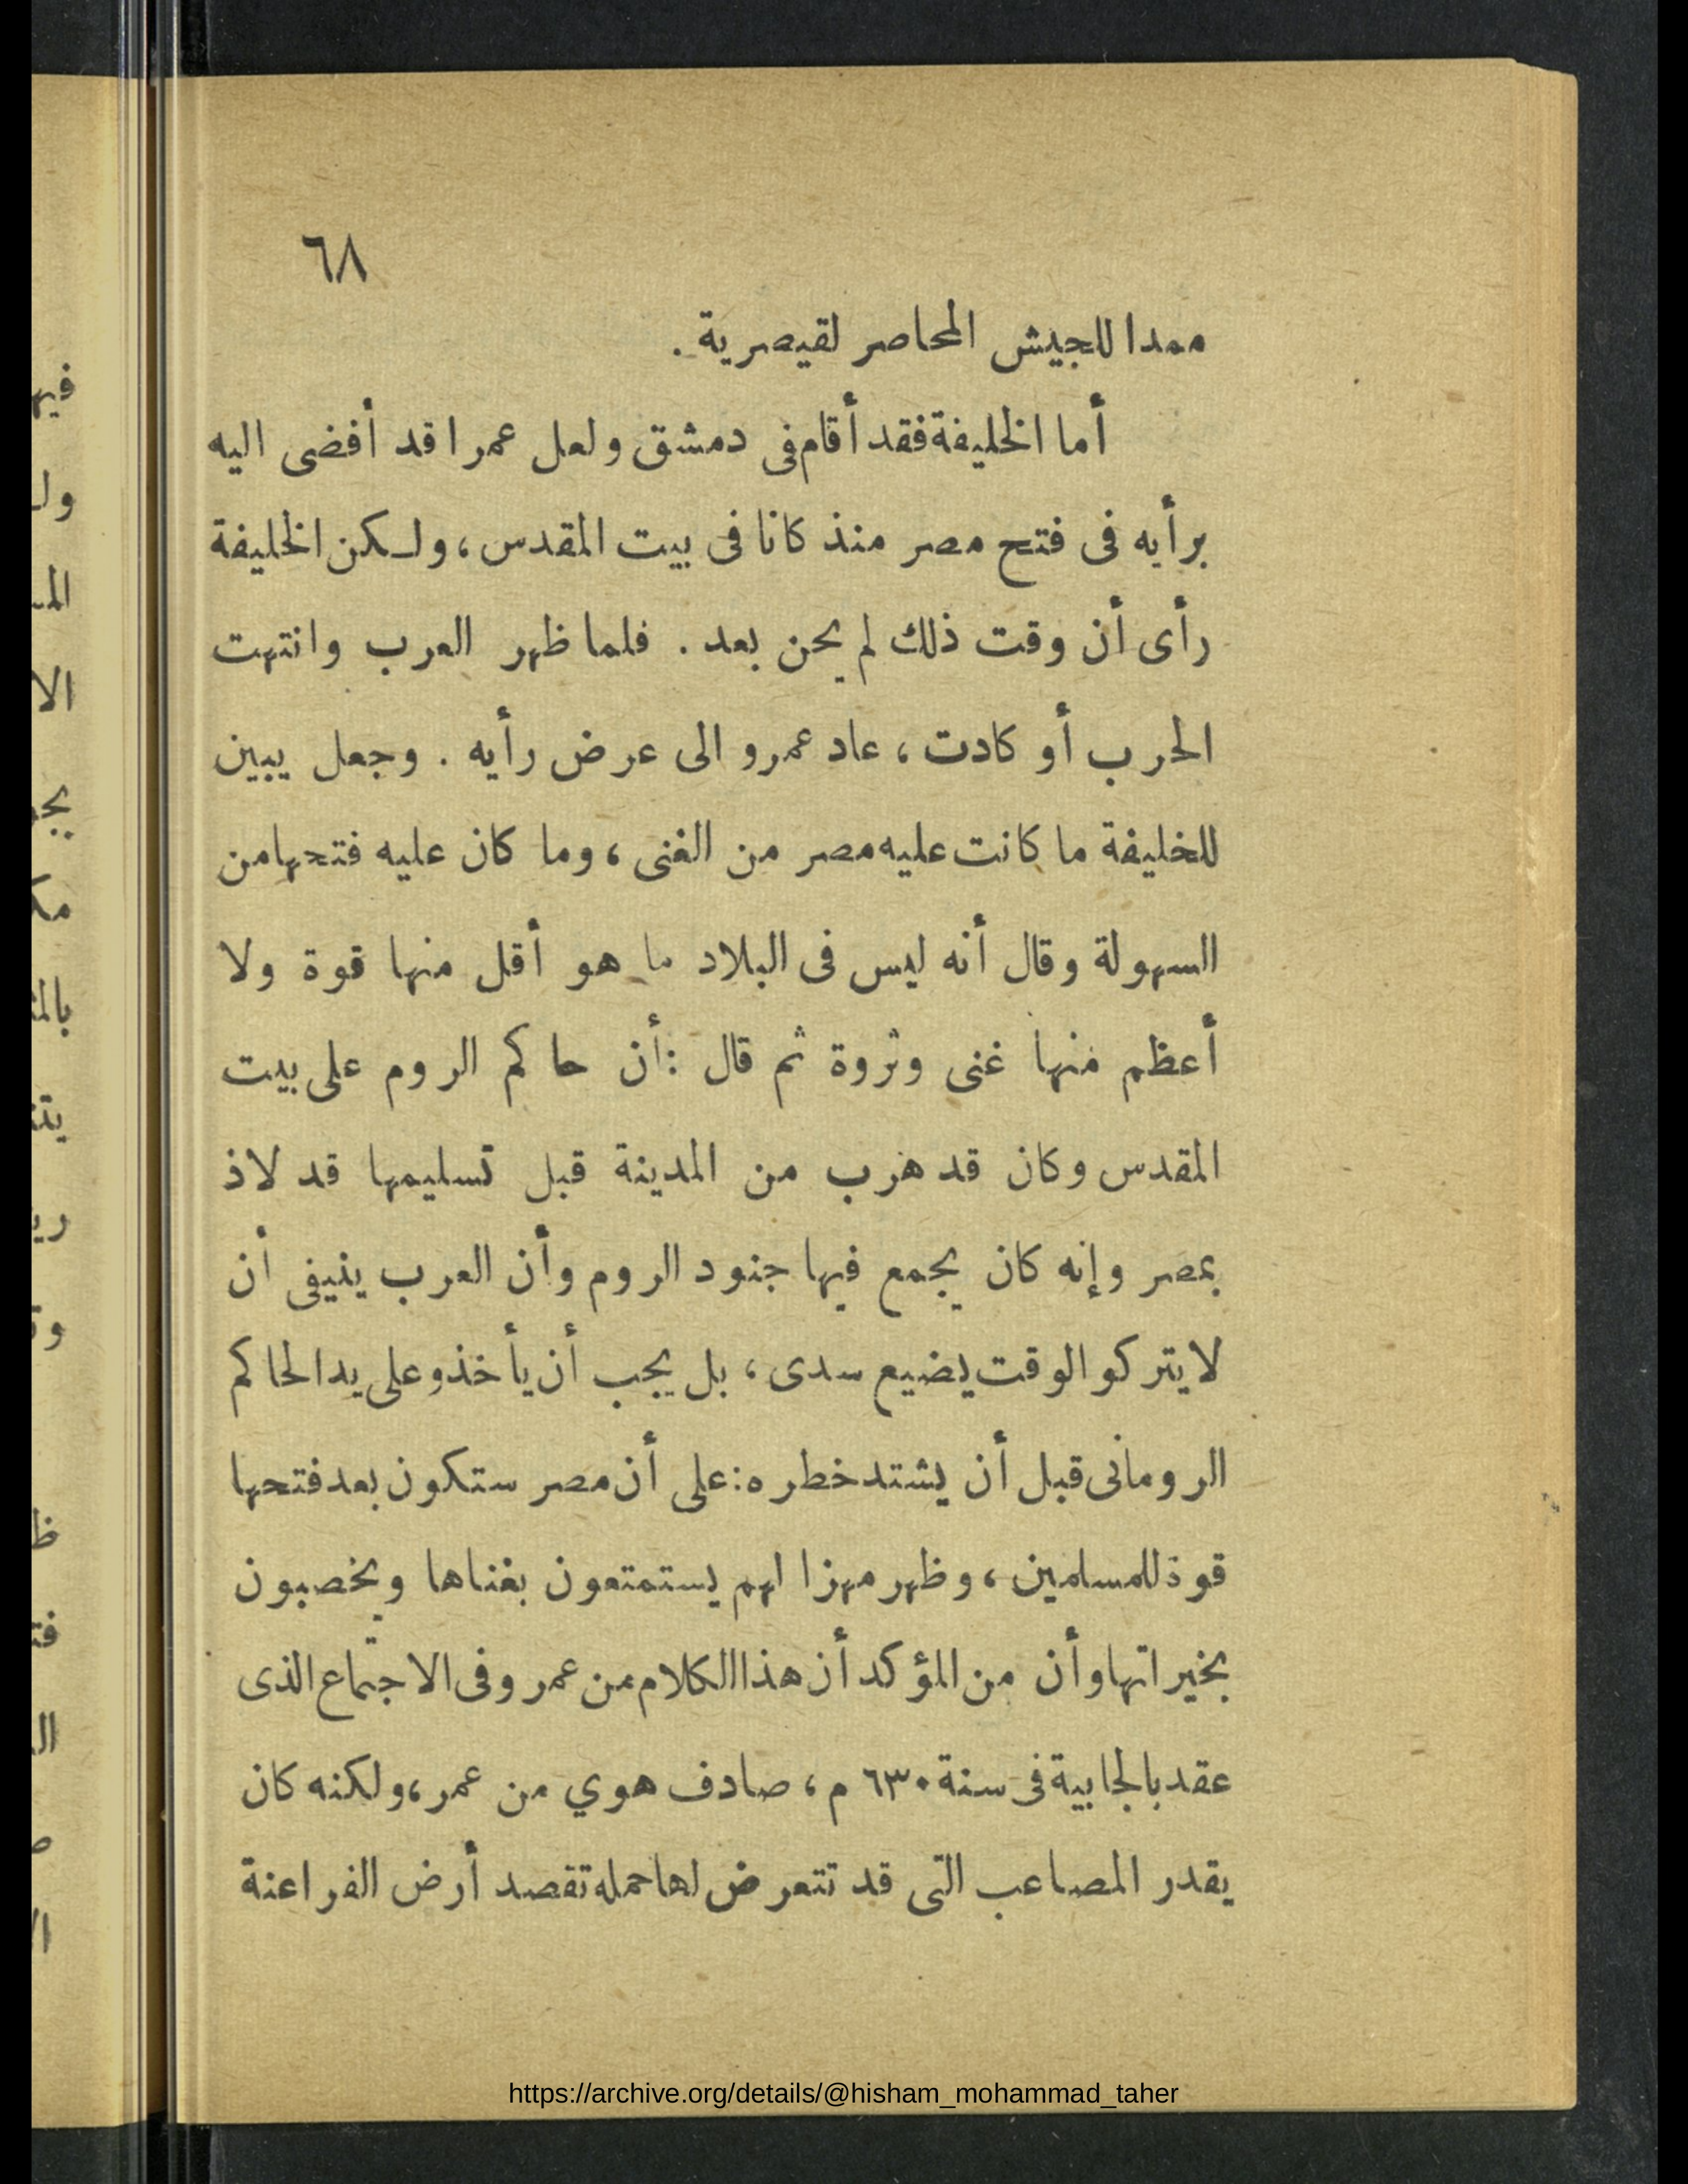 ٦٨
ممدا للجيش المحاصر لقيصرية .
أما الخليفة فقد أقام فى دمشق ولعل عمرا قد أفضى اليه
برأيه فى فتح مصر منذ كانا فى بيت المقدس ، ولكن الخليفة
رأى أن وقت ذلك لم يحن بعد . فلما ظهر العرب وانتهت
الحرب أو كادت ، عاد عمرو الى عرض رأيه . وجعل يبين
للخليفة ما كانت عليه مصر من الغنى ، وما كان عليه فتحها من
السهولة وقال أنه ليس فى البلاد ما هو أقل منها قوة ولا
أعظم منها غنى وثروة ثم قال : أن حاكم الروم على بيت
المقدس وكان قد هرب من المدينة قبل تسليمها قد لاذ
بمصر وإنه كان يجمع فيها جنود الروم وأن العرب ينيفى أن
لا يتركو الوقت يضيع سدى ، بل يجب أن يأخذو على يد الحاكم
الرومانى قبل أن يشتد خطره : على أن مصر ستكون بعد فتحها
قوة للمسلمين ، وظهر مهزا لهم يستمتعون بغناها ويخصبون
بخيراتها وأن من المؤكد أن هذا الكلام من عمرو فى الاجتماع الذى
عقد بالجابية فى سنة ٦٣٠ م ، صادف هوي من عمر ، ولكنه كان
يقدر المصاعب التى قد تتعرض لها حمله تقصد أرض الفراعنة
https://archive.org/details/@hisham_mohammad_taher